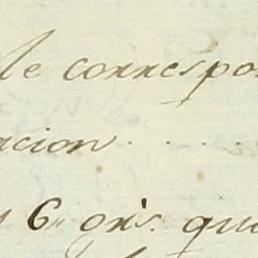 le correspo
acion . . . .
6 on.s que